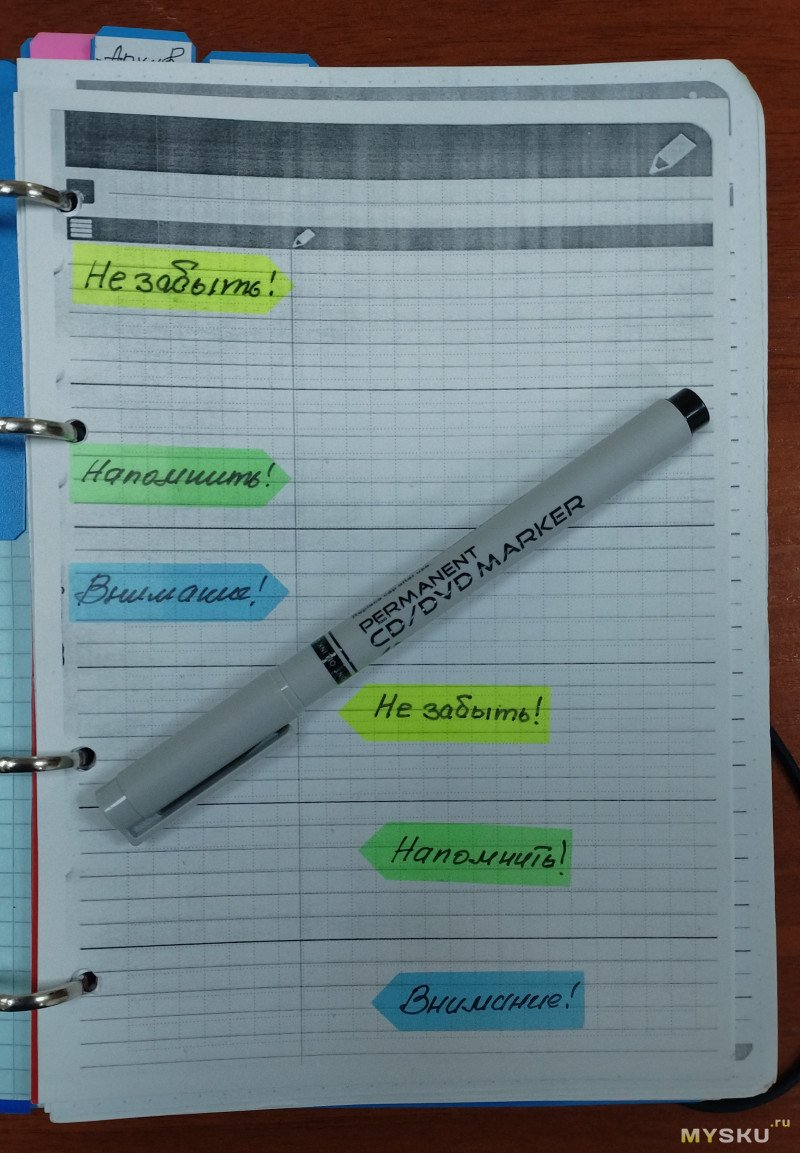 Архив
Не забыть!
Напомнить!
Внимание!
PERMANENT
CD/DVD MARKER
Не забыть!
Напомнить!
Внимание!
MYSKU.ru